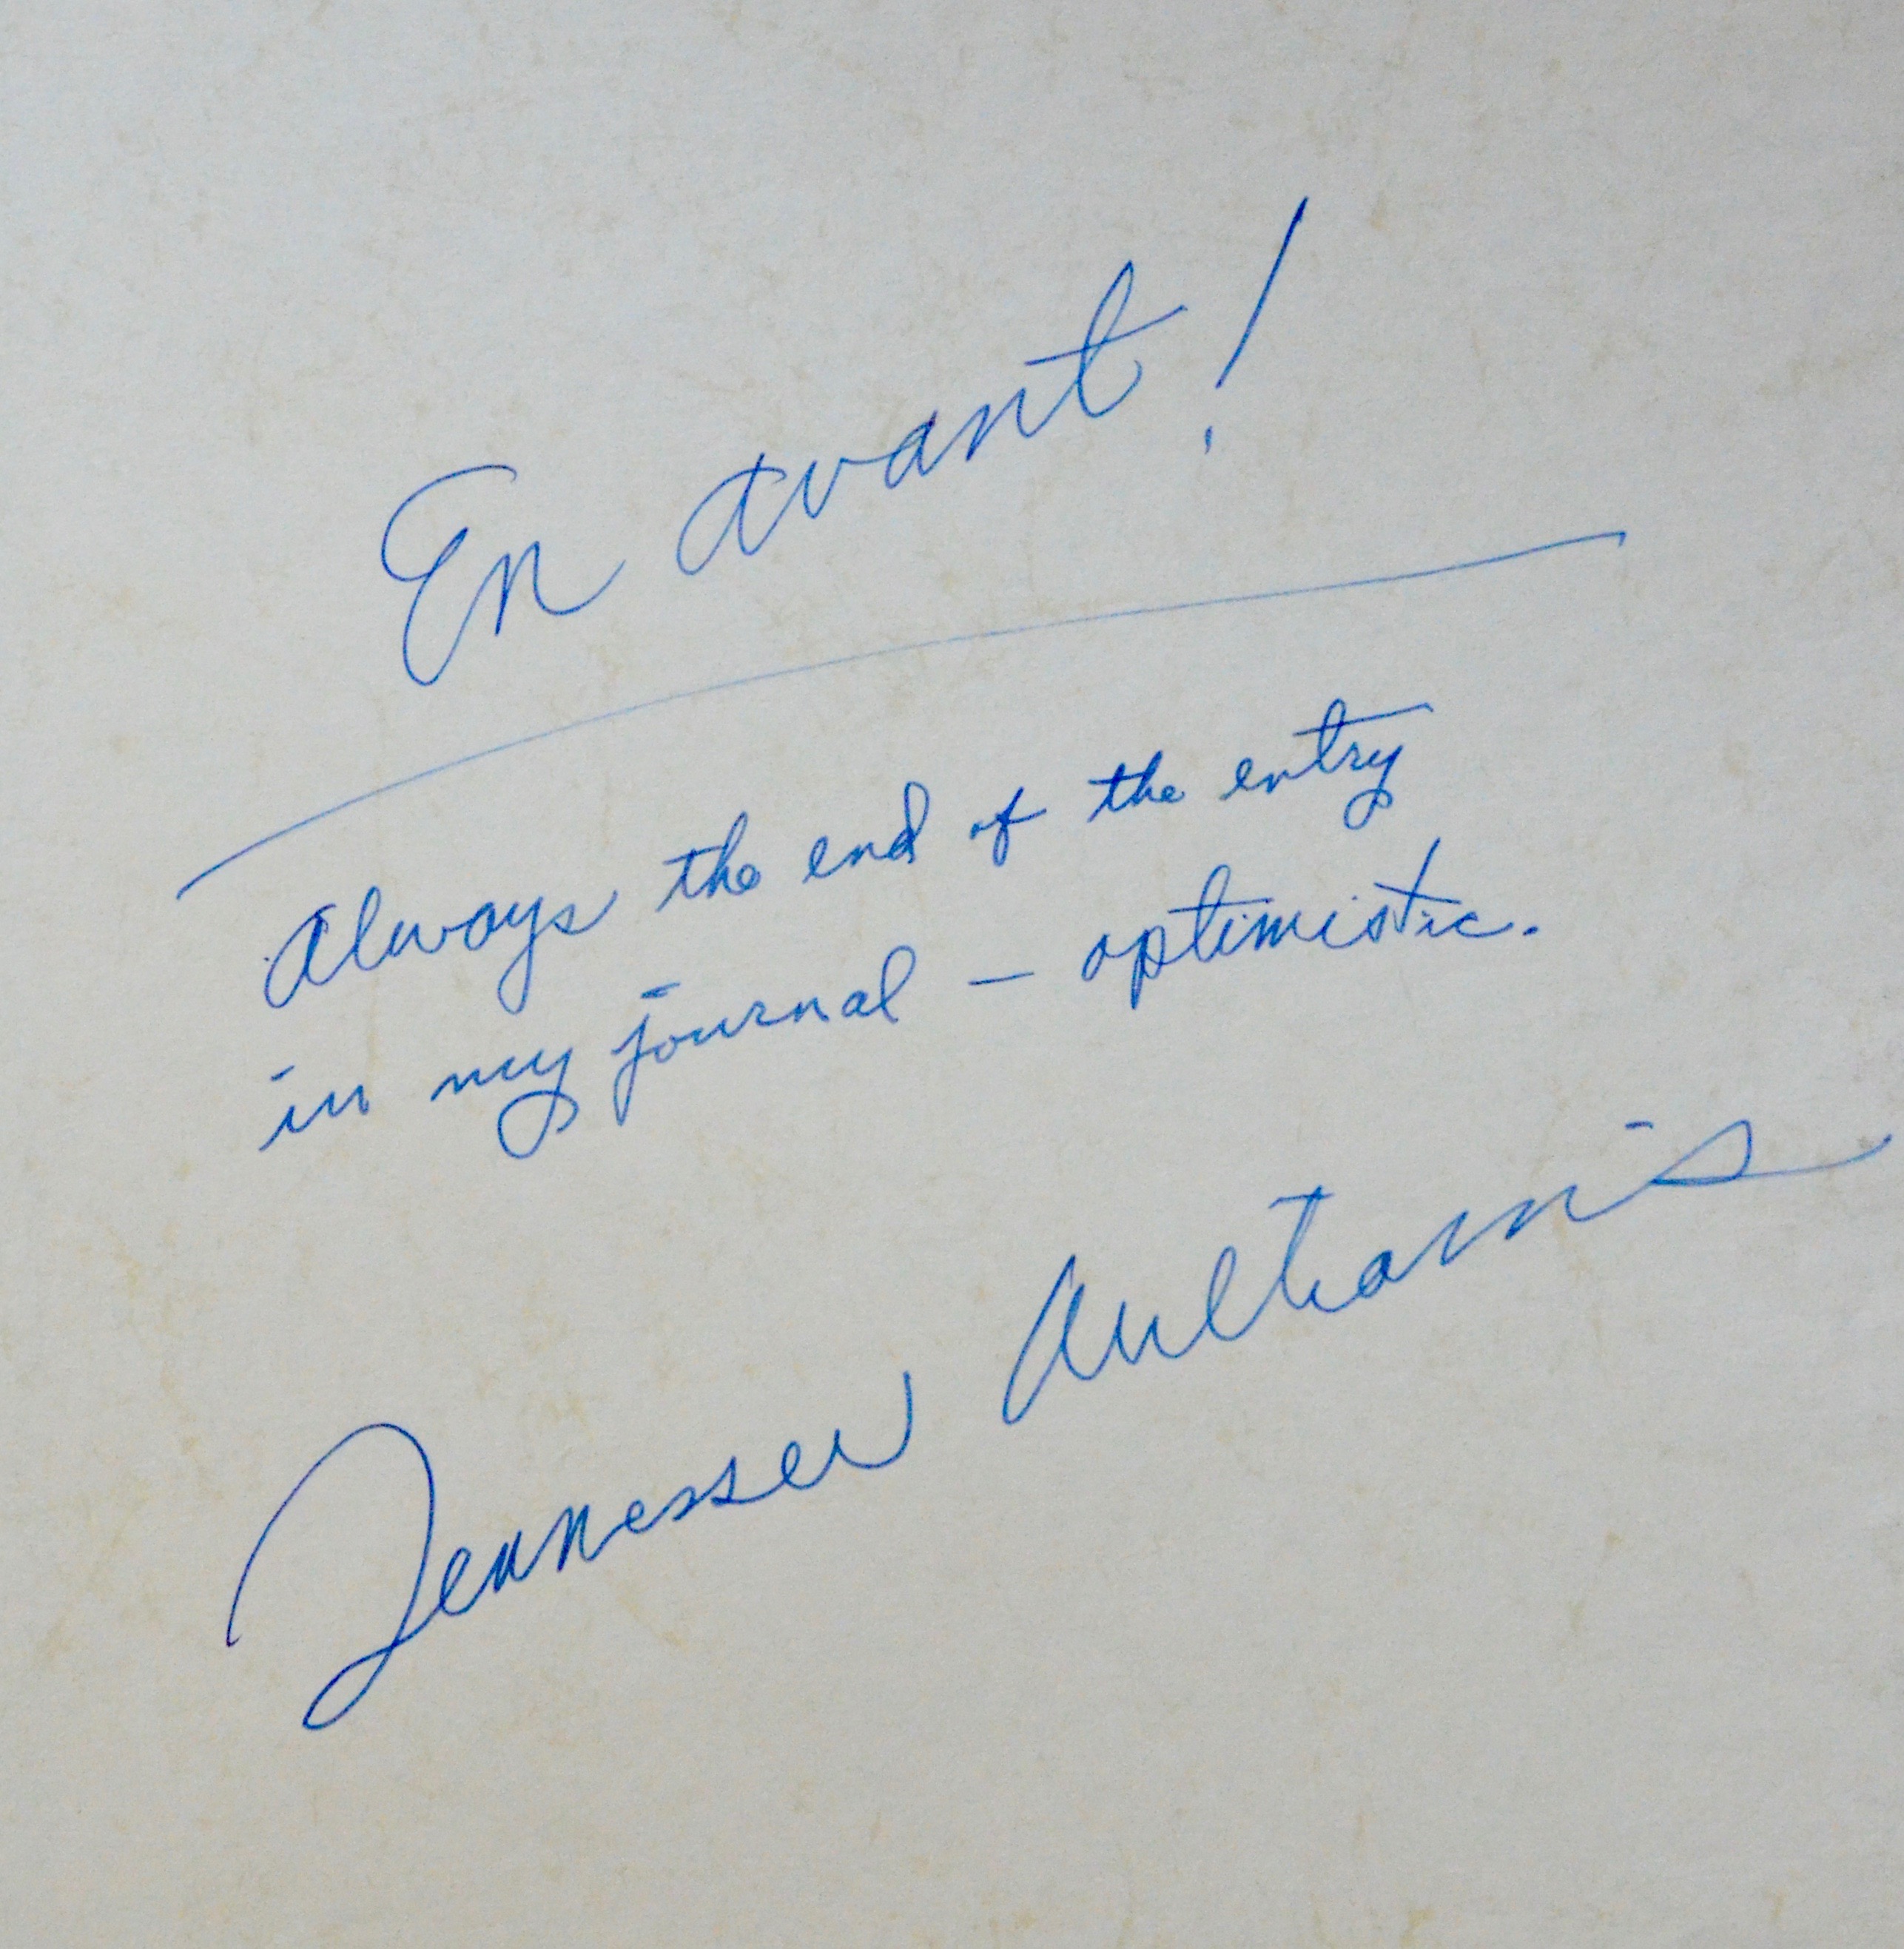 En avant!
Always the end of the entry
in my journal – optimistic.